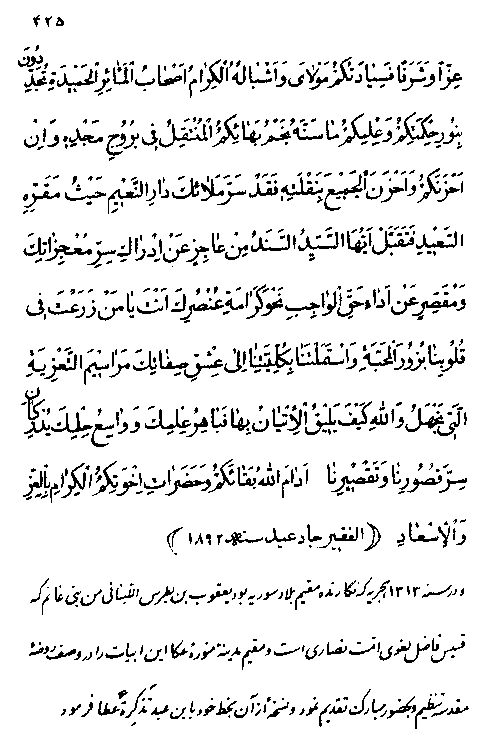 ٤٢٥
عِزًّا وَشَرَفًا فَسِيَادَتُكُمْ مَوْلَايَ وَاَشْبَالُهُ الْكِرَامُ اَصْحَابُ الْمَاثِرِ الْحَمِيدَةِ تُجَدِّدُونَ
بِنُورِ حِكْمَتِكُمْ وَعِلْمِكُمْ مَا سَنَّهُ نَجْمُ بَهَائِكُمُ الْمُنْتَقِلُ فِى بُرُوجِ مَجْدِهِ وَاِنْ
اَحْزَنَكُمْ وَاَحْزَنَ الْجَمِيعَ بِنَقْلَتِهِ فَقَدْ سَرَّ مَلَائِكَ دَارِ النَّعِيْمِ حَيْثُ مَقَرِّهِ
السَّعِيدِ فَتَقَبَّلْ اَيُّهَا السَّيِّدُ السَّنَدُ مِنْ عَاجِزٍ عَنْ اِدْرَاكِ سِرِّ مُعْجِزَاتِكَ
وَمُقَصِّرٍ عَنْ اَدَاءِ حَقِّ الْوَاجِبِ نَحْوَ كَرَامَةِ عُنْصُرِكَ اَنْتَ يَا مَنْ زَرَعْتَ فِى
قُلُوبِنَا بُزُورَ الْمَحَبَّةِ وَاسْتَمَلْتَنَا بِكُلِّيَّتِنَا اِلَى عِشْقِ صِفَاتِكَ مَرَاسِيمَ التَّعْزِيَةِ
الَّتِى نَجْهَلُ وَاللهِ كَيْفَ يَلِيقُ الْاِتْيَانُ بِهَا فَبَاهِرُ عِلْمِكَ وَوَاسِعُ حِلْمِكَ يُدْرِكَانِ
سِرَّ قُصُورِنَا وَتَقْصِيرِنَا اَدَامَ اللهُ بَقَائَكُمْ وَحَضَرَاتِ اِخْوَتِكُمُ الْكِرَامِ بِالْعِزِّ
وَالْاِسْعَادِ ((الفقیر جاد عید سنه ١٨٩٢))
و در سنه ١٣١٣ هجریه که نگارنده مقیم بلاد سوریه بود یعقوب بن بطرس اللبنانی من بنی غانم که
قسیس فاضل لغوی امّت نصاری است و مقیم مدینهٔ منورهٔ عکا این ابیات را در وصف روضهٔ
مقدسه تنظیم و بحضور مبارک تقدیم نمود و نسخهٔ از آن بخط خود باین عبد تذکرةً عطا فرمود